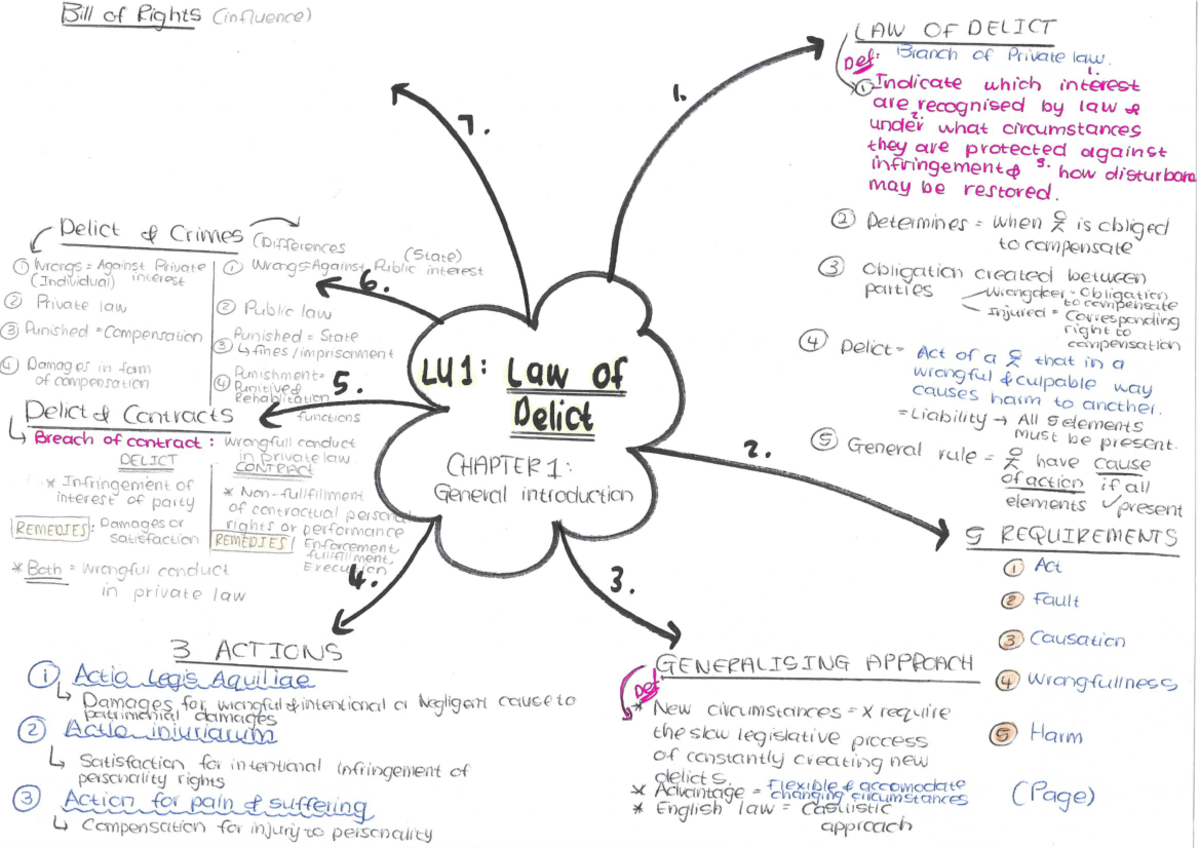 Bill of Rights (influence)
LAW OF DELICT
Def: Branch of Private law.
① Indicate which 1. interest
are recognised by law &
2. under what circumstances
they are protected against
infringement & 3. how disturbanc
may be restored.
② Determines = when is obliged
to compensate
③ Obligation created between
parties
Wrongdoer = Obligation
to compensate
Injured = Corresponding
right to
compensation
④ Delict = Act of a that in a
wrongful & culpable way
causes harm to another.
= Liability → All 5 elements
must be present.
⑤ General rule = have cause
of action if all
elements ✓ present
1.
2.
3.
4.
5.
6.
7.
LU1: Law of
Delict
CHAPTER 1:
General introduction
5 REQUIREMENTS
① Act
② Fault
③ Causation
④ Wrongfullness
⑤ Harm
(Page)
GENERALISING APPROACH
Def
* New circumstances = x require
the slow legislative process
of constantly creating new
delicts.
* Advantage = Flexible & accomodate
changing circumstances
* English law = Casuistic
approach
3 ACTIONS
① Actio Legis Aquiliae
↳ Damages for wrongful & intentional or Negligent cause to
patrimonial damages
② Actio iniuriarum
↳ Satisfaction for intentional infringement of
personality rights
③ Action for pain & suffering
↳ Compensation for injury to personality
Delict & Contracts
↳ Breach of contract : Wrongfull conduct
in private law
DELICT
* Infringement of
interest of party
REMEDIES : Damages or
satisfaction
CONTRACT
* Non-fullfillment
of contractual personal
rights or performance
REMEDIES Enforcement
fullfillment
Execution
* Both = Wrongful conduct
in private law
Delict & Crimes (Differences
① Wrongs = Against Private
(Individual) interest
② Private law
③ Punished = Compensation
④ Damages in form
of compensation
(State)
① Wrongs = Against Public interest
② Public law
③ Punished = State
↳ fines / imprisonment
④ Punishment =
Punitive &
Rehabilitation
functions